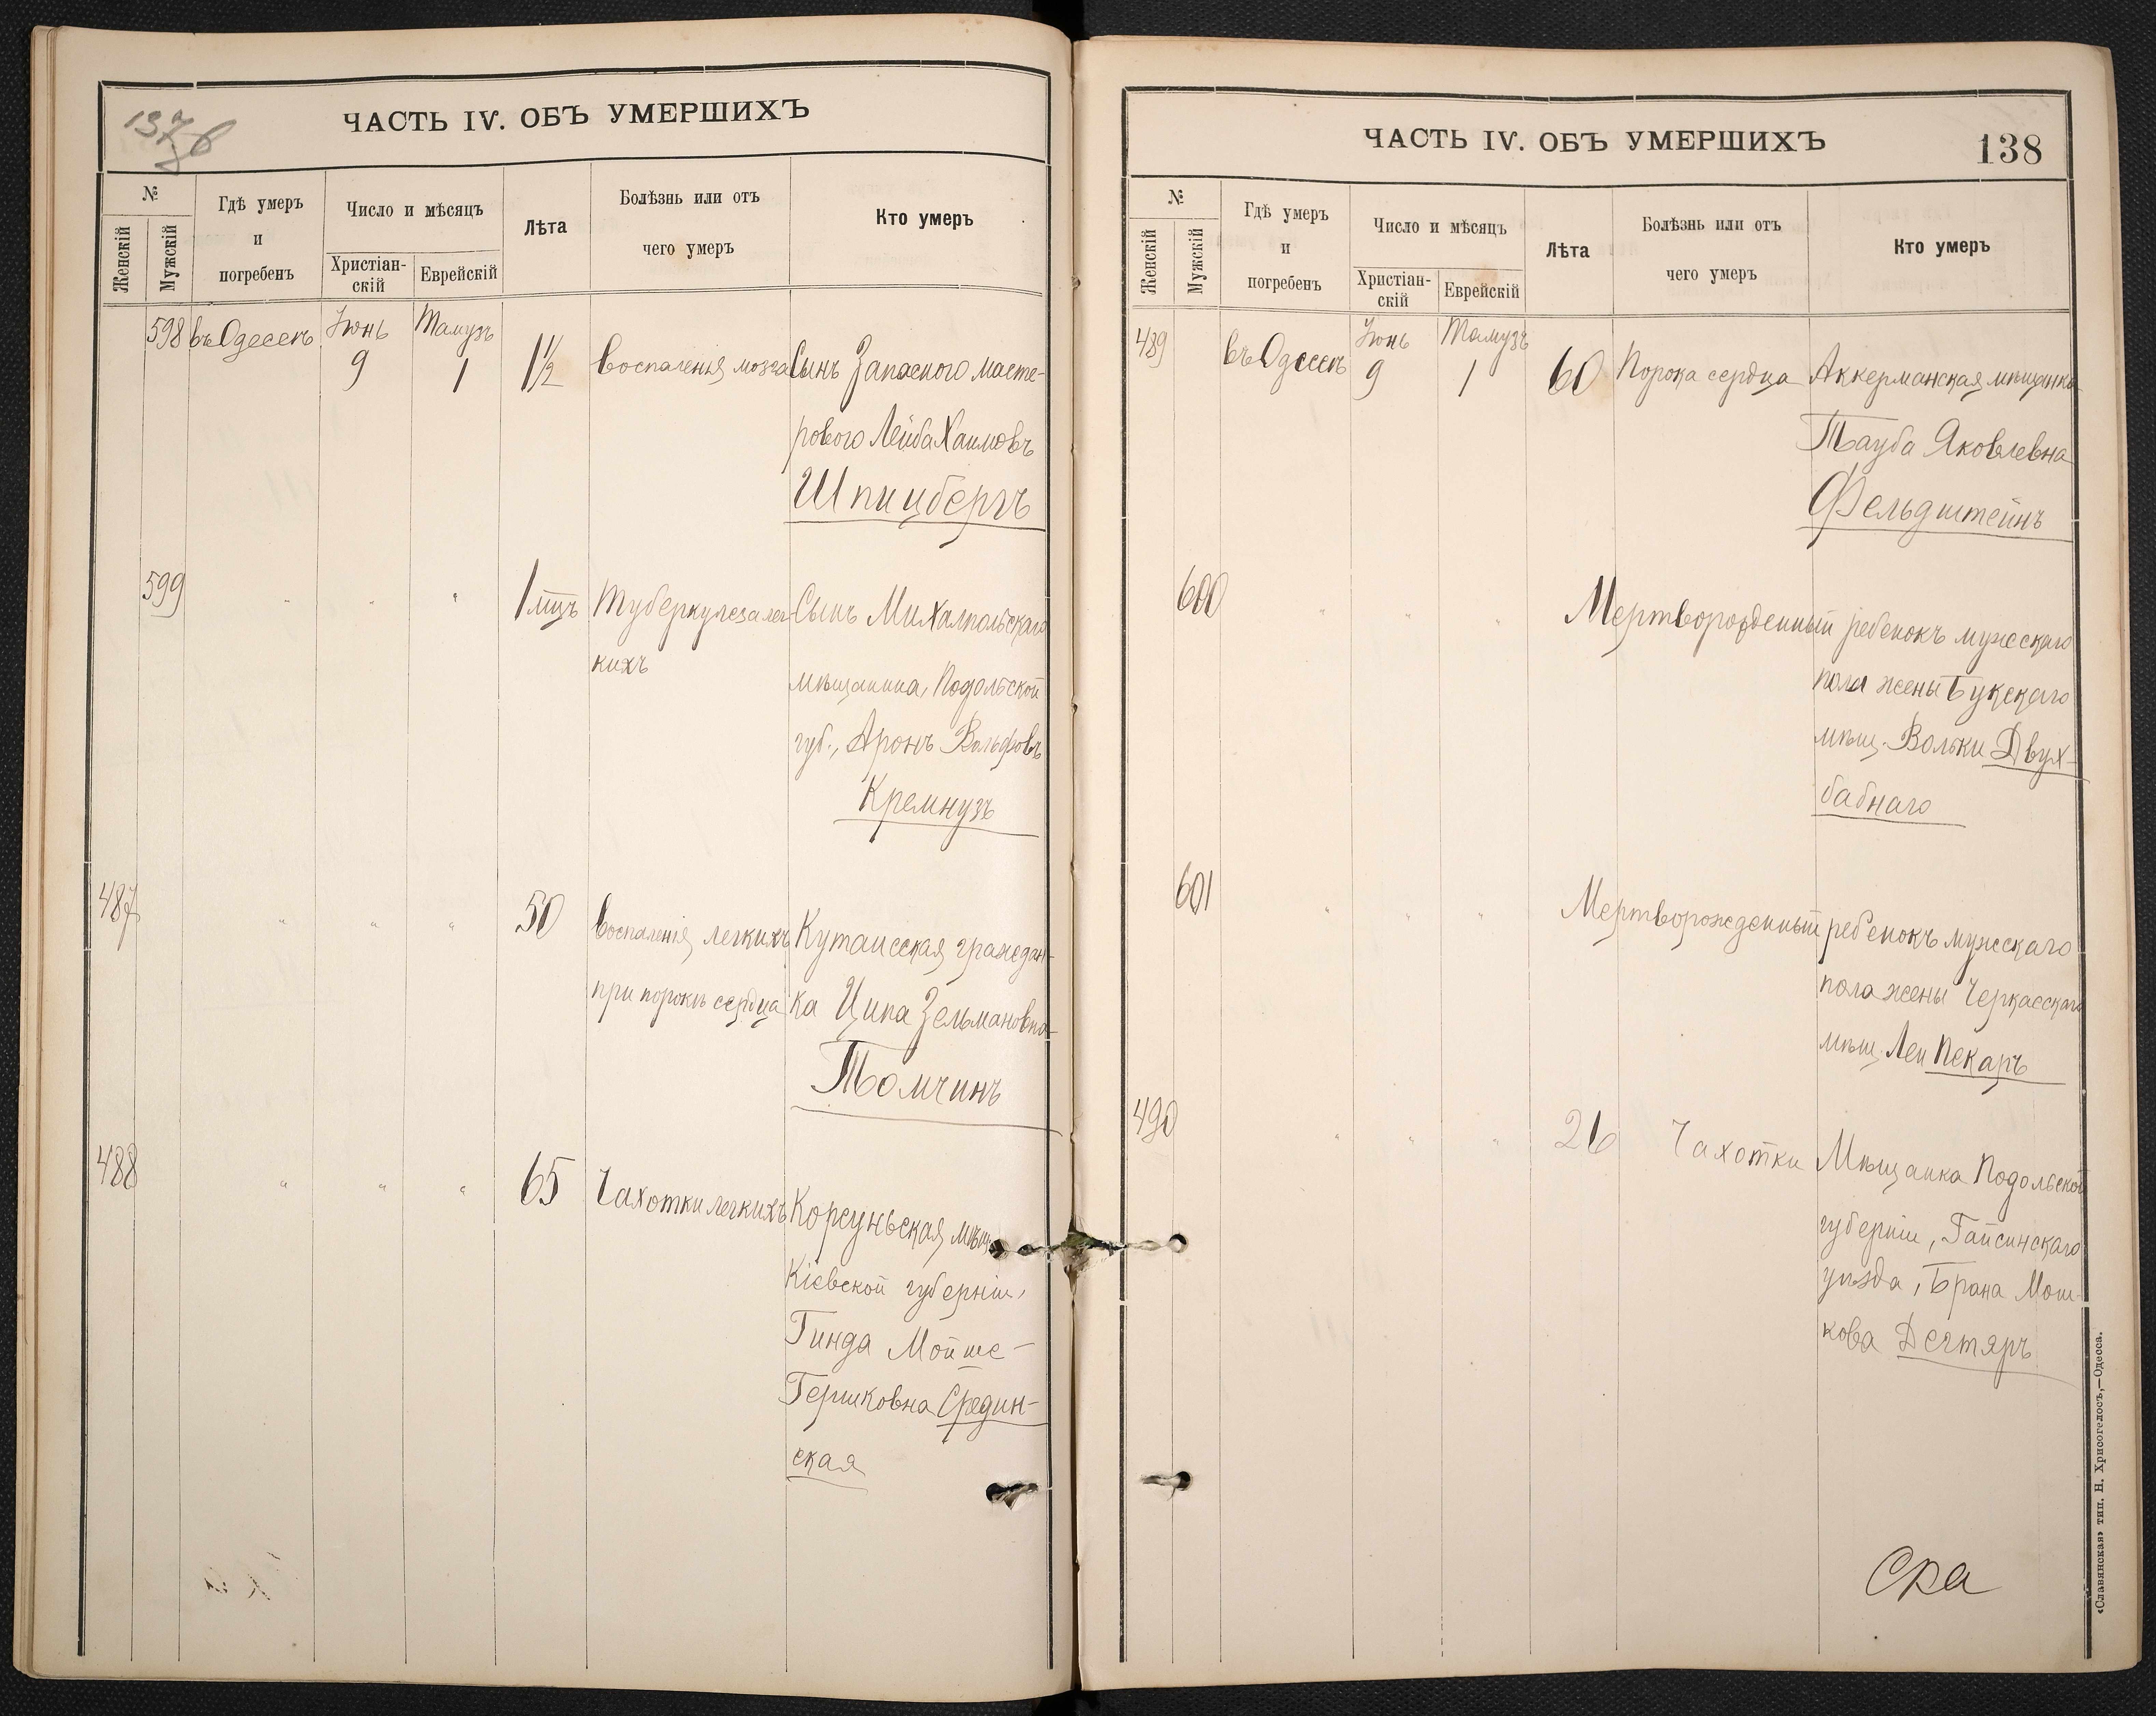 137б
ЧАСТЬ IV. ОБЪ УМЕРШИХЪ
№
Женскій
Мужскій
Гдѣ умеръ
и
погребенъ
Число и мѣсяцъ
Христіан-
скій
Еврейскій
Лѣта
Болѣзнь или отъ
чего умеръ
Кто умеръ
598 въ Одессѣ Іюнь 9 Тамузъ 1 1½ воспаленія мозга Сынъ Запасного масте-
рового Лейба Хаимовъ
Шпицбергъ
599 " " " 1 мцъ Туберкулеза лег- Сынъ Михалпольскаго
кихъ мѣщанина, Подольской
губ., Аронъ Вольфовъ
Кремнузъ
487 " " " 50 воспаленія легкихъ Кутаисская граждан-
при порокѣ сердца ка Ципа Зельмановна
Томчинъ
488 " " " 65 Чахотки легкихъ Корсуньская мѣщ.
Кіевской губерніи,
Гинда Мойше-
Гершковна Средин-
ская
ЧАСТЬ IV. ОБЪ УМЕРШИХЪ
138
№
Женскій
Мужскій
Гдѣ умеръ
и
погребенъ
Число и мѣсяцъ
Христіан-
скій
Еврейскій
Лѣта
Болѣзнь или отъ
чего умеръ
Кто умеръ
489 въ Одессѣ Іюнь 9 Тамузъ 1 60 Порока сердца Аккерманская мѣщанка
Тауба Яковлевна
Фельдштейнъ
600 " " " Мертворожденный ребенокъ мужескаго
пола жены Букскаго
мѣщ. Вольки Двух-
бабнаго
601 " " " Мертворожденный ребенокъ мужскаго
пола жены Черкасскаго
мѣщ. Леи Пекаръ
490 " " " 26 Чахотки Мѣщанка Подольской
губерніи, Гайсинскаго
уѣзда, Брана Мош-
кова Дегтяръ
«Славянская» тип. Н. Хрисогелосъ,—Одесса.